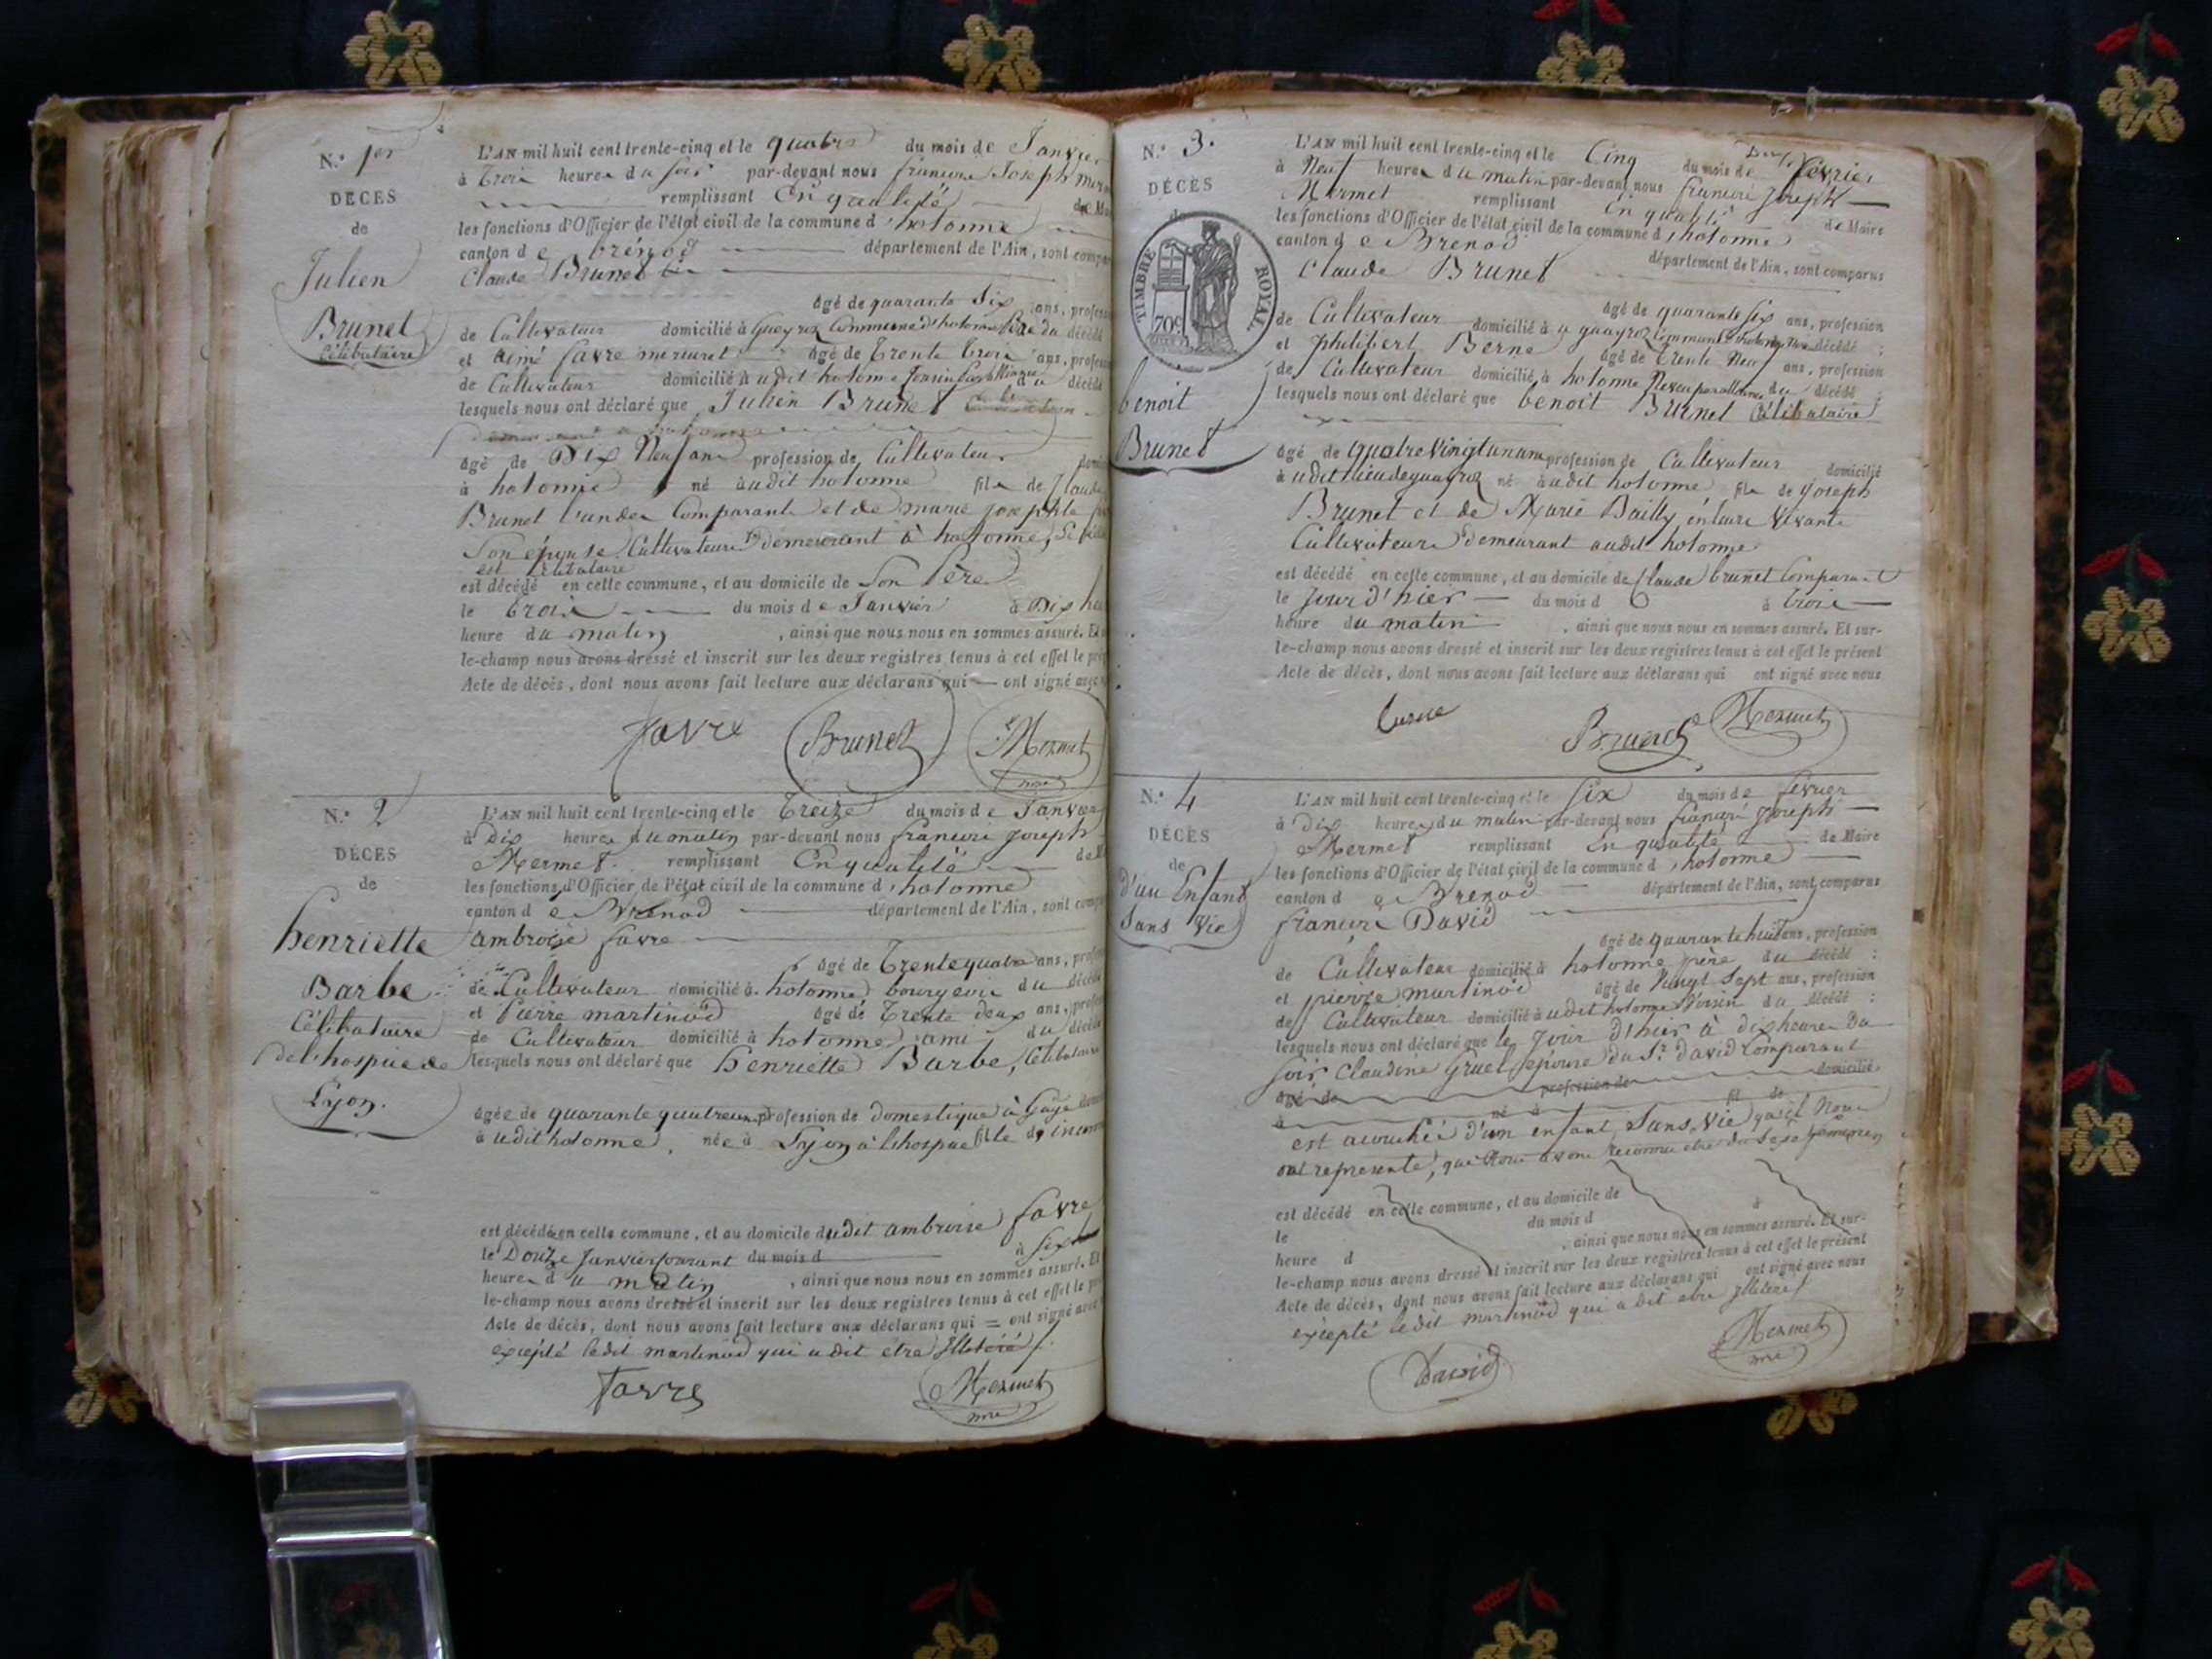 N.º 1er
DÉCÈS
de
Julien
Brunet
célibataire
L'AN mil huit cent trente-cinq et le quatre du mois de Janvier
à trois heures du soir par-devant nous françois Joseph
remplissant En qualité de
les fonctions d'Officier de l'état civil de la commune d'hotonne
canton de brénod département de l'Ain, sont
Claude Brunet
âgé de quarante Six ans,
de Cultivateur domicilié à Gueyroz Commune d'hotonne Père du décédé
et aimé favre mercuret âgé de trente trois ans,
de Cultivateur domicilié à udit hotonne Cousin par alliance du décédé
lesquels nous ont déclaré que Julien Brunet
âgé de Dix Neuf ans profession de Cultivateur
à hotonne né audit hotonne fils de Claude
Brunet l'un des Comparants et de marie josephte
Son épouse Cultivateurs demeurant à hotonne,
est célibataire
est décédé en cette commune, et au domicile de Son Père
le trois du mois de Janvier à Dix
heure du matin, ainsi que nous nous en sommes assuré. Et
le-champ nous avons dressé et inscrit sur les deux registres tenus à cet effet le
Acte de décès, dont nous avons fait lecture aux déclarans qui ont signé avec
favre Brunet Mermet
mre
N.º 2
DÉCES
de
henriette
Barbe
Célibataire
de l'hospice de
Lyon.
L'AN mil huit cent trente-cinq et le treize du mois de Janvier
à dix heures du matin par-devant nous françois joseph
Mermet remplissant En qualité de
les fonctions d'Officier de l'état civil de la commune d'hotonne
canton de Brénod département de l'Ain, sont
ambroise favre
âgé de trente quatre ans,
de Cultivateur domicilié à hotonne bourgeois du
et Pierre martinod âgé de trente deux ans,
de Cultivateur domicilié à hotonne ami du
lesquels nous ont déclaré que henriette Barbe, Célibataire
âgée de quarante quatre ans profession de domestique à Gage
à udit hotonne, née à Lyon à lhospice fille d'
est décédée en cette commune, et au domicile dudit ambroise favre
le Douze Janvier Courant du mois d à Six
heures du matin, ainsi que nous nous en sommes assuré. Et
le-champ nous avons dressé et inscrit sur les deux registres tenus à cet effet le
Acte de décès, dont nous avons fait lecture aux déclarans qui ont signé avec
excepté ledit martinod qui a dit etre Illetéré
favre Mermet
mre
N.º 3.
DÉCÈS
de
TIMBRE ROYAL
70c
benoit
Brunet
L'AN mil huit cent trente-cinq et le Cinq du mois de février
à Neuf heures du matin par-devant nous françois joseph
Mermet remplissant En qualité de Maire
les fonctions d'Officier de l'état civil de la commune d'hotonne
canton de Brenod département de l'Ain, sont comparus
Claude Brunet
âgé de quarante six ans, profession
de Cultivateur domicilié à
et philibert Berne âgé de trente Neuf ans, profession
de Cultivateur domicilié à hotonne Neveu par alliance du décédé ;
lesquels nous ont déclaré que benoit Brunet Célibataire
âgé de quatre Vingt un ans profession de Cultivateur domicilié
à né audit hotonne fils de joseph
Brunet et de Marie Bailly Vivants
Cultivateurs demeurant audit hotonne
est décédé en cette commune, et au domicile de Claude brunet Comparant
le Jour d'hier du mois d à trois
heure du matin, ainsi que nous nous en sommes assuré. Et sur-
le-champ nous avons dressé et inscrit sur les deux registres tenus à cet effet le présent
Acte de décès, dont nous avons fait lecture aux déclarans qui ont signé avec nous
Brunet Mermet
N.º 4
DÉCÈS
de
d'un Enfant
Sans Vie
L'AN mil huit cent trente-cinq et le Six du mois de février
à Dix heures du matin par-devant nous françois joseph
Mermet remplissant En qualité de Maire
les fonctions d'Officier de l'état civil de la commune d'hotonne
canton de Brenod département de l'Ain, sont comparus
françois David
âgé de quarante huit ans, profession
de Cultivateur domicilié à hotonne père du décédé ;
et pierre martinod âgé de Vingt Sept ans, profession
de Cultivateur domicilié à udit hotonne Voisin du décédé ;
lesquels nous ont déclaré que le Jour d'hier à dix heures du
soir, Claudine Gruel épouse du Sr. David Comparant
âgé de profession de domicilié
à né à fil de
est acouchée d'un enfant Sans Vie qu'il Nous
ont representé, que Nous avons reconnu etre du Sexe
est décédé en cette commune, et au domicile de
le du mois d à
heure d , ainsi que nous nous en sommes assuré. Et sur-
le-champ nous avons dressé et inscrit sur les deux registres tenus à cet effet le présent
Acte de décès, dont nous avons fait lecture aux déclarans qui ont signé avec nous
excepté ledit martinod qui a dit etre
David Mermet
mre